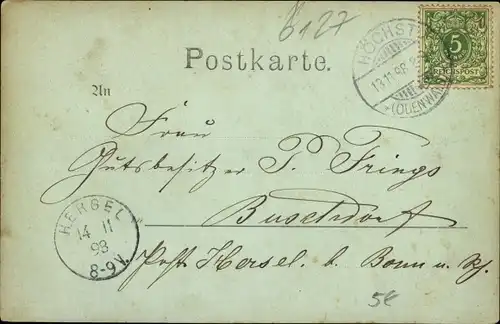 6127
Postkarte.
HÖCHST
13.11.98 8-
(ODENWALD)
5
REICHSPOST
An
Frau
Gutsbesitzer P. Frings
Buschdorf
HERSEL
14 11
98
8-9V.
Post Hersel. b. Bonn a. Rh.
5€